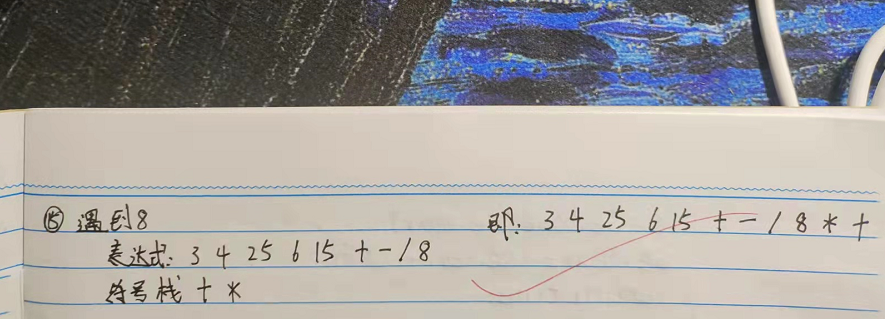 ⑮ 遇到8
即: 3 4 25 6 15 + - / 8 * +
表达式: 3 4 25 6 15 + - / 8
符号栈 + *